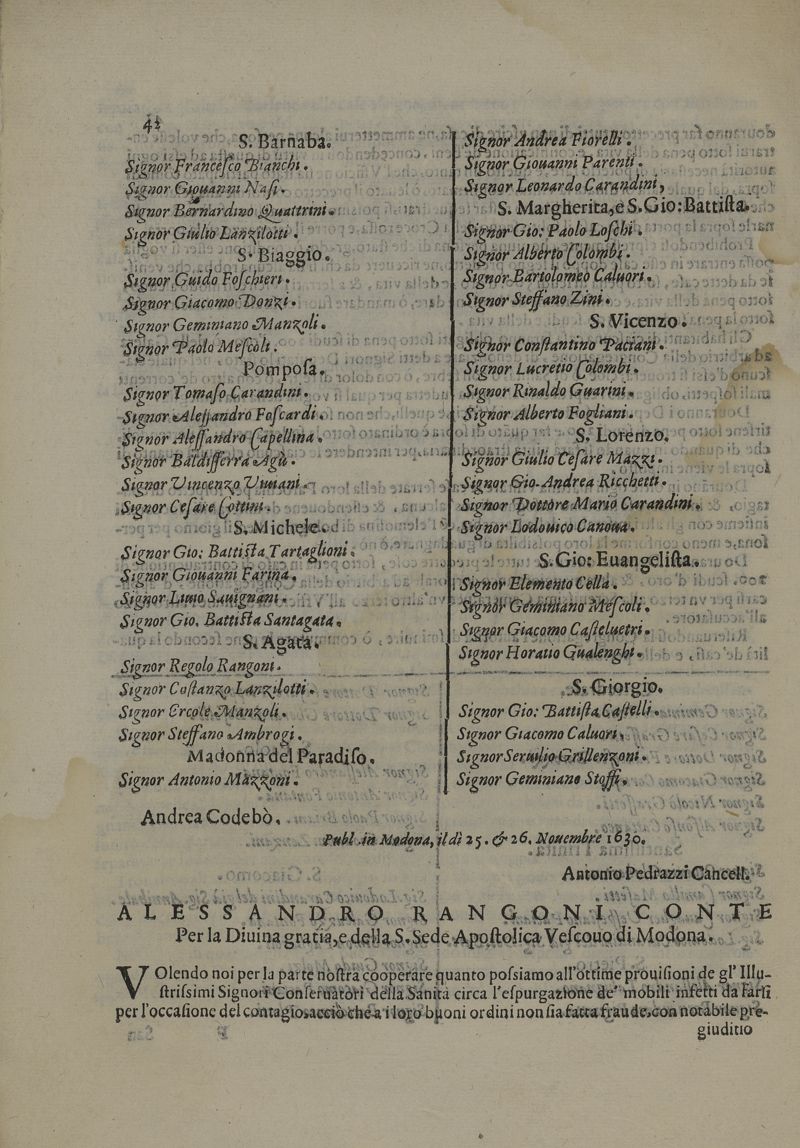 42
S. Barnaba.
Signor Franceſco Bianchi.
Signor Giouanni Naſi.
Signor Bernardino Quattrini.
Signor Giulio Lanzilotti.
S. Biaggio.
Signor Guido Foſchieri.
Signor Giacomo Donzi.
Signor Geminiano Manzoli.
Signor Paolo Meſcoli.
Pompoſa.
Signor Tomaſo Carandini.
Signor Aleſſandro Foſcardi.
Signor Aleſſandro Capellina.
Signor Baldiſſerra Agù.
Signor Vincenzo Vmani.
Signor Ceſare Cottini.
S. Michele.
Signor Gio: Battiſta Tartaglioni.
Signor Giouanni Farina.
Signor Liuio Sauignani.
Signor Gio. Battiſta Santagata.
S. Agata.
Signor Regolo Rangoni.
Signor Coſtanzo Lanzilotti.
Signor Ercole Manzoli.
Signor Steffano Ambrogi.
Madonna del Paradiſo.
Signor Antonio Mazzoni.
Signor Andrea Fiorelli.
Signor Giouanni Parenti.
Signor Leonardo Carandini,
S. Margherita, e S. Gio: Battiſta.
Signor Gio: Paolo Loſchi.
Signor Alberto Colombi.
Signor Bartolomeo Caluori.
Signor Steffano Zini.
S. Vicenzo.
Signor Conſtantino Paciani.
Signor Lucretio Colombi.
Signor Rinaldo Guarini.
Signor Alberto Fogliani.
S. Lorenzo.
Signor Giulio Ceſare Mazzi.
Signor Gio. Andrea Ricchetti.
Signor Dottore Mario Carandini.
Signor Lodouico Canoua.
S. Gio: Euangeliſta.
Signor Elemento Cella.
Signor Geminiano Meſcoli.
Signor Giacomo Caſteluetri.
Signor Horatio Gualenghi.
S. Giorgio.
Signor Gio: Battiſta Caſtelli.
Signor Giacomo Caluori,
Signor Seruilio Grillenzoni.
Signor Geminiano Stoffi.
Andrea Codebò.
Publ. in Modona, il dì 25. & 26. Nouembre 1630.
Antonio Pedrazzi Cancell.
ALESSANDRO RANGONI CONTE
Per la Diuina gratia, e della S. Sede Apoſtolica Veſcouo di Modona.
VOlendo noi per la parte noſtra cooperare quanto poſsiamo all'ottime prouiſioni de gl' Illu-
ſtriſsimi Signori Conſeruatori della Sanità circa l'eſpurgazione de' mobili infetti da farſi
per l'occaſione del contagio, acciò che a i loro buoni ordini non ſia fatta fraude, con notabile pre-
giuditio